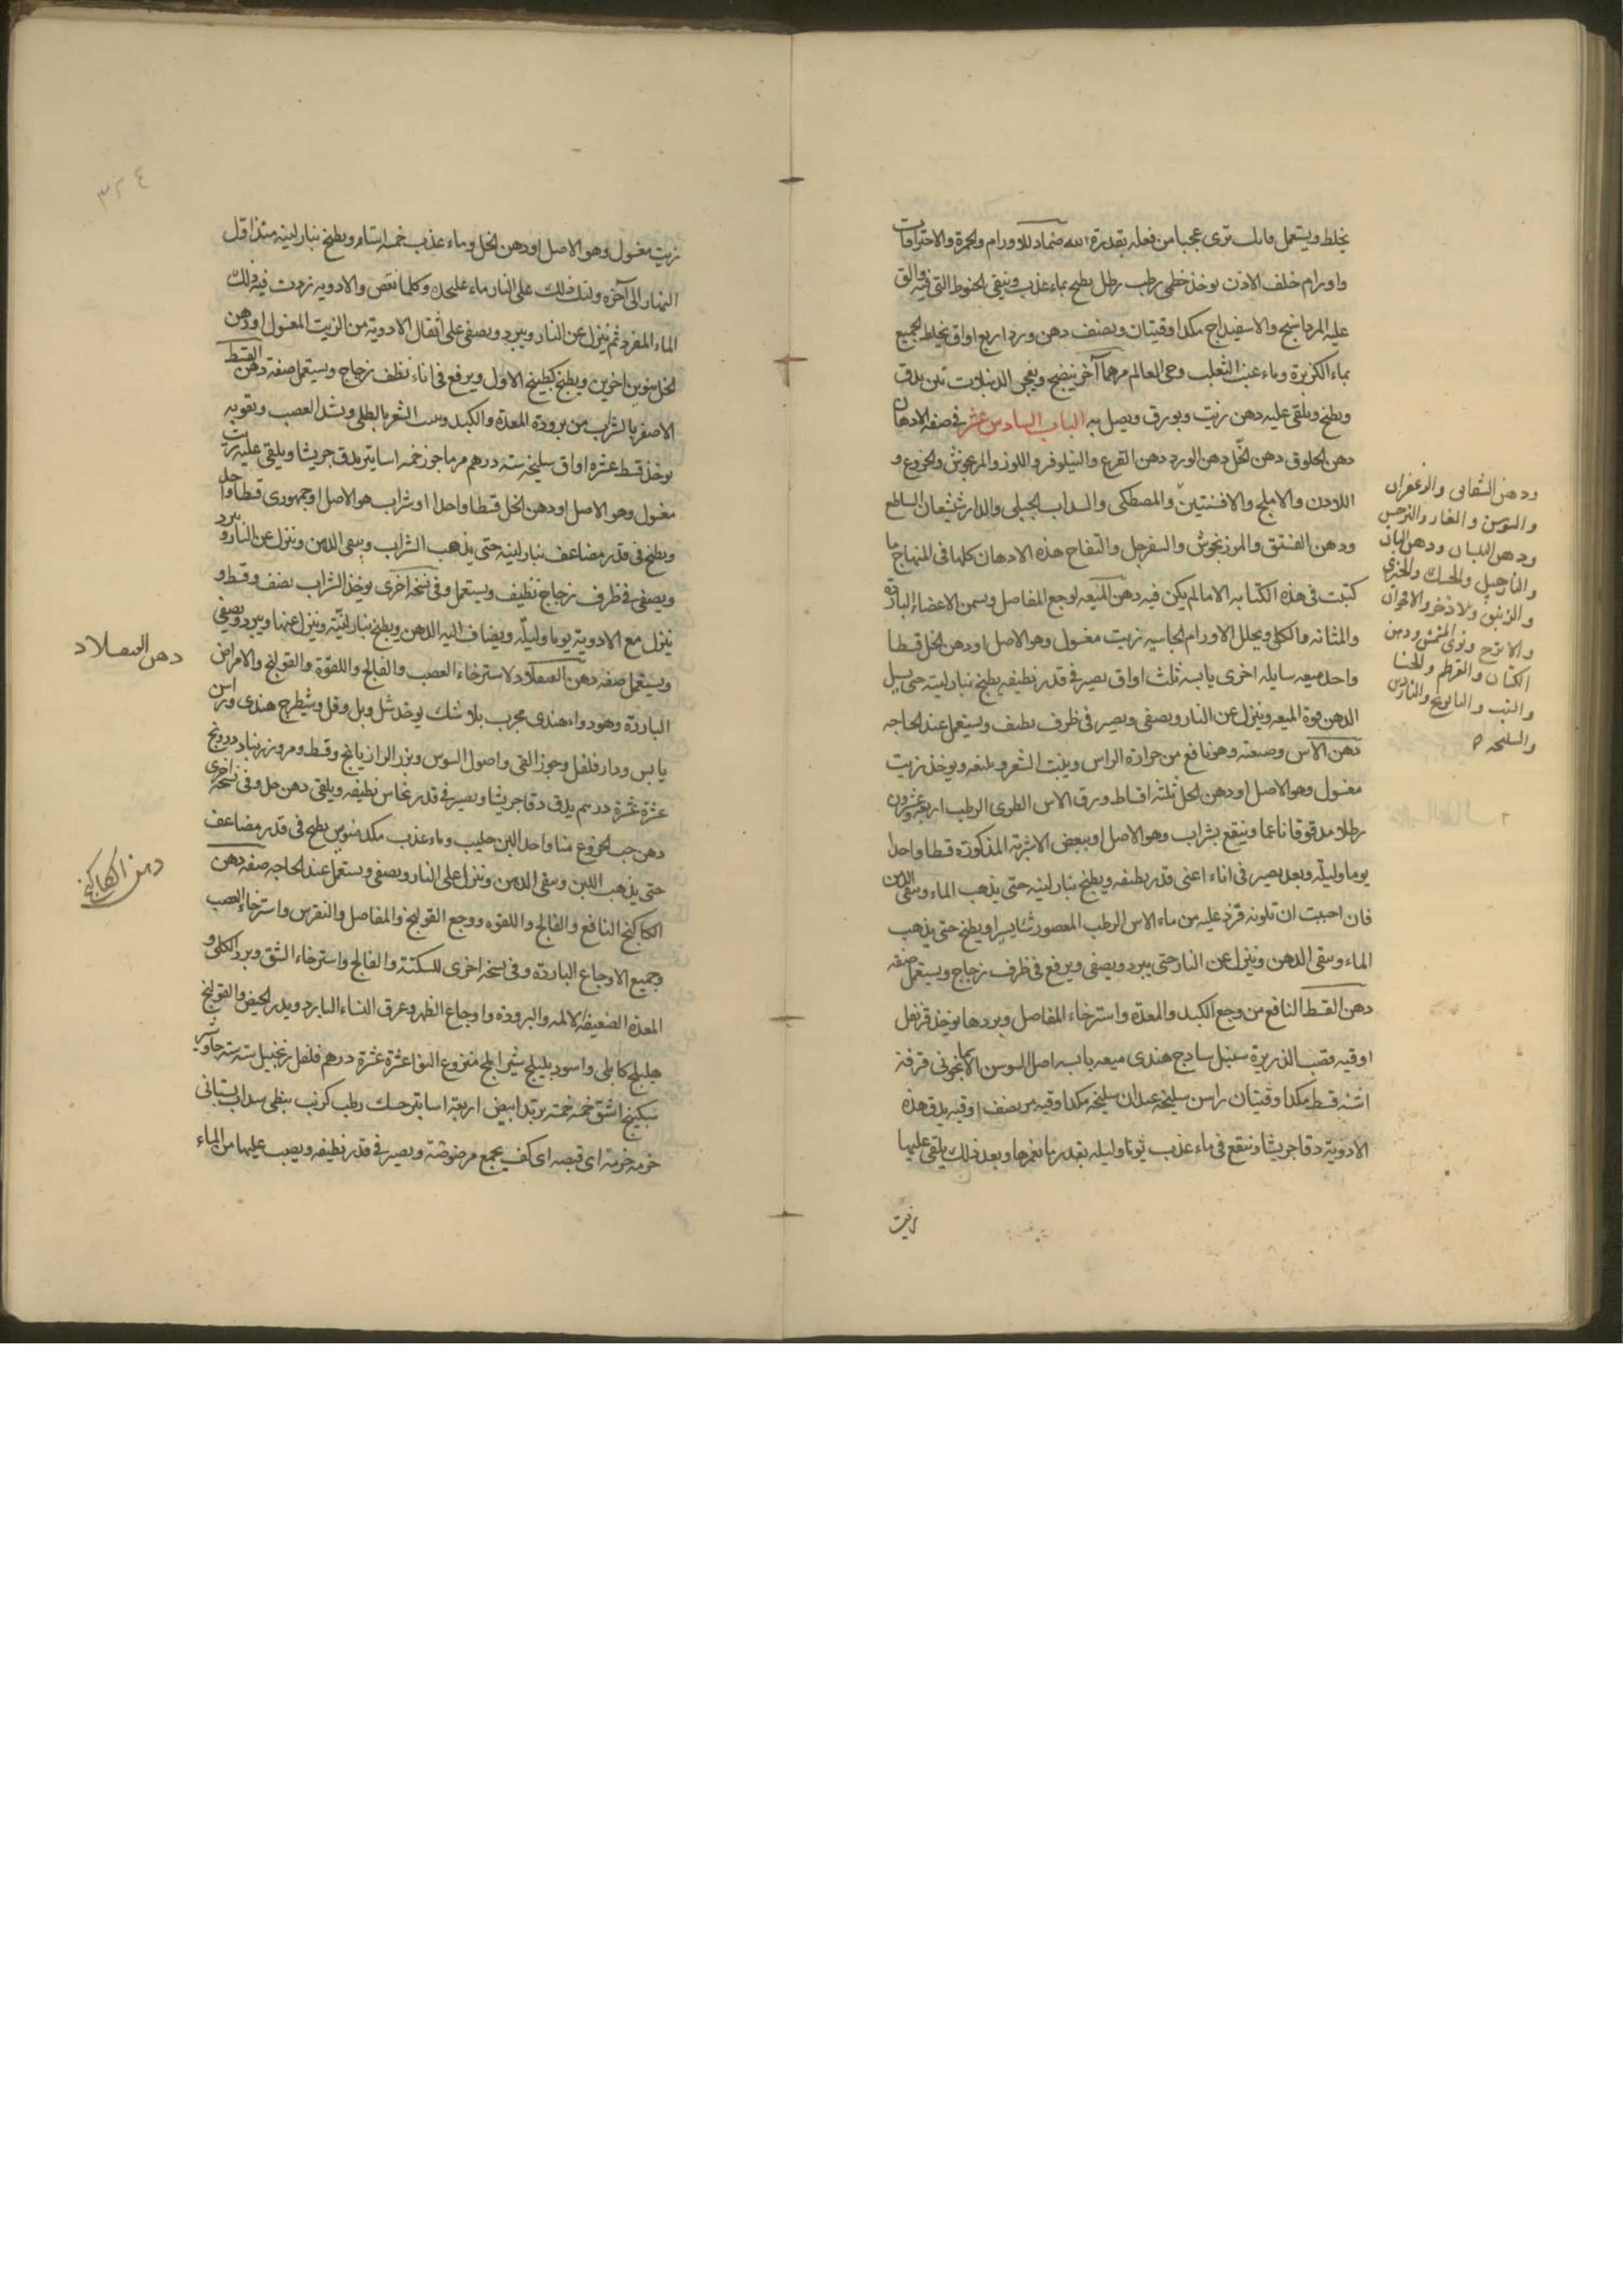 يخلط ويستعمل فانك ترى عجبا من فعله بقدرة الله ضماد للاورام والحمرة والاحتراقات
واورام خلف الاذن يوخذ خطمى رطب رطل يطبخ بماء عذب وينقى الخيوط التى فيه والق
عليه المرداسنج والاسفيداج مكد اوقيتان ونصف دهن ورد اربع اواق يخلط الجميع
بماء الكزبرة وماء عنب الثعلب وحى العالم مرهما آخر ينضج ويفجر الدبيلات تين يدق
ويطبخ ويلقى عليه دهن زيت وبورق ويصل به الباب السادس عشر فى صفة الادهان
دهن الخلوق دهن الخل دهن الورد دهن القرع والنيلوفر واللوز والمرعوش والخروع و
اللادن والاملج والافسنتين والمصطكى والسداب الجبلى والدارشيشعان الساطع
ودهن الفستق والمرزنجوش والسفرجل والتفاح هذه الادهان كلها فى المنهاج ما
كتبت فى هذه الكتابه الا ما لم يكن فيه دهن الميعه لوجع المفاصل ويسخن الاعضاء الباردة
والمثانه والكلى ويحلل الاورام الجاسيه زيت مغسول وهو الاصل او دهن الخل قسطا
واحد ميعه سايله اخرى يابسه ثلث اواق يصير فى قدر نظيفه يطبخ بنار لينه حتى يسيل
الدهن قوة الميعه وينزل عن النار ويصفى ويصير فى ظرف نظيف ويستعمل عند الحاجه
دهن الآس وصنعته وهو نافع من حرارة الراس وينبت الشعر ويمنعه ويوخذ زيت
مغسول وهو الاصل او دهن الخل ثلثه اقساط ورق الاس الطرى الرطب اربعة وعشرون
رطلا مدقوقا ناعما وينقع بشراب وهو الاصل او ببعض الاشربة المذكورة قسطا واحدا
يوما وليله وبعد يصير فى اناء اعنى قدر نظيفه ويطبخ بنار لينه حتى يذهب الماء ويبقى الدهن
فان احببت ان تلونه فزد عليه من ماء الاس الرطب المعصور شايسيرا ويطبخ حتى يذهب
الماء ويبقى الدهن وينزل عن النار حتى يبرد ويصفى ويرفع فى ظرف زجاج ويستعمل صفه
دهن القسط النافع من وجع الكبد والمعدة واسترخاء المفاصل وبردها يوخذ قرنفل
اوقيه قصب الذريرة سنبل سادج هندى ميعه يابسه اصل السوسن الاسمانجونى قرفة
اشنه قسط مكد اوقيتان راسن سليخه عيدان سليخه مكد اوقيه مر نصف اوقيه يدق هذه
الادوية دقا جريشا وينقع فى ماء عذب يوما وليله بقدر ما يغمرها وبعد ذلك يلقى عليها
زيت
ودهن الشقايق والزعفران
والسوسن والغار والنرجس
ودهن البلسان ودهن البان
والنارجيل والحسك والخيرى
والزنبق والاذخر والاقحوان
والاترج ونوى المشمش ودهن
الكتان والقرطم والحنا
والشبت والبابونج والناردين
والسليخه
٣٢٤
زيت مغسول وهو الاصل او دهن الخل وماء عذب خمسة استار ويطبخ بنار لينه منذ اول
النهار الى آخره وليك ذلك على النار ماء عليحده وكلما نقص والادويه زدت فيه ذلك
الماء المفرد ثم ينزل عن النار ويبرد ويصفى على اثقال الادوية من الزيت المغسول او دهن
الخل منوين اخرين ويطبخ كطبيخ الاول ويرفع فى اناء نظف زجاج ويستعمل صفة دهن القسط
الاصفر بالشراب من برودة المعدة والكبد وينبت الشعر بالطلى وشد العصب وتقويه
يوخذ قسط عشرة اواق سليخه سته درهم مرماجوز خمسه اساتير يدق جريشا ويلقى عليه زيت
مغسول وهو الاصل او دهن الخل قسطا واحدا او شراب هو الاصل او جمهورى قسطا واحد
ويطبخ فى قدر مضاعف بنار لينه حتى يذهب الشراب ويبقى الدهن وينزل عن النار ويبرد
ويصفى فى ظرف زجاج نظيف ويستعمل وفى نسخه اخرى يوخذ الشراب نصف وقسط و
ينزل مع الادوية يوما وليلة ويضاف اليه الدهن ويطبخ بنار لينة وينزل عنها ويبرد ويصفى
ويستعمل صفه دهن السعلاد لاسترخاء العصب والفالج واللقوة والقولنج والامراض
الباردة وهو دواء هندى مجرب بلا شك يوخذ شل وبل وفل وشيطرج هندى وراسن
يابس ودارفلفل وجوز القى واصول السوس وبزر الرازيانج وقسط ومر وزرنباد درونج
عشرة عشرة درهم يدق دقا جريشا ويصير فى قدر نحاس نظيفه ويلقى دهن حل وفى نسخه اخرى
دهن حب الخروع منا واحد البن حليب وماء عذب مكد منوين يطبخ فى قدر مضاعف
حتى يذهب اللبن ويبقى الدهن وينزل على النار ويصفى ويستعمل عند الحاجه صفه دهن
الكاكنج النافع والفالج واللقوه ووجع القولنج والمفاصل والنقرس واسترخاء العصب
وجميع الاوجاع الباردة وفى نسخه اخرى للسكتة والفالج واسترخاء الشق وبرد الكلى و
المعدة الضعيفه الالمه والبرودة واوجاع الظهر وعرق النساء البارد ويدر الحيض والقولنج
هليلج كابلى واسود بليلج شير املج منزوع النوا عشرة عشرة درهم فلفل زنجبيل سته سته جاوشير
سكبينج اشق خمسه خمسة تربد ابيض اربعة اساتير حسك رطب كرنب نبطى سداب بستانى
حزمه حزمة اى قبضه اى كف يجمع مرضوضة ويصير فى قدر نظيفه ويصب عليها من الماء
دهن السعلاد
دهن الكاكنج